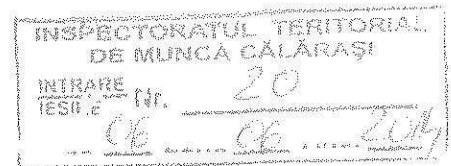 INSPECTORATUL TERITORIAL
DE MUNCĂ CĂLĂRAȘI
INTRARE
IEȘIRE Nr. 20
06 06 2014